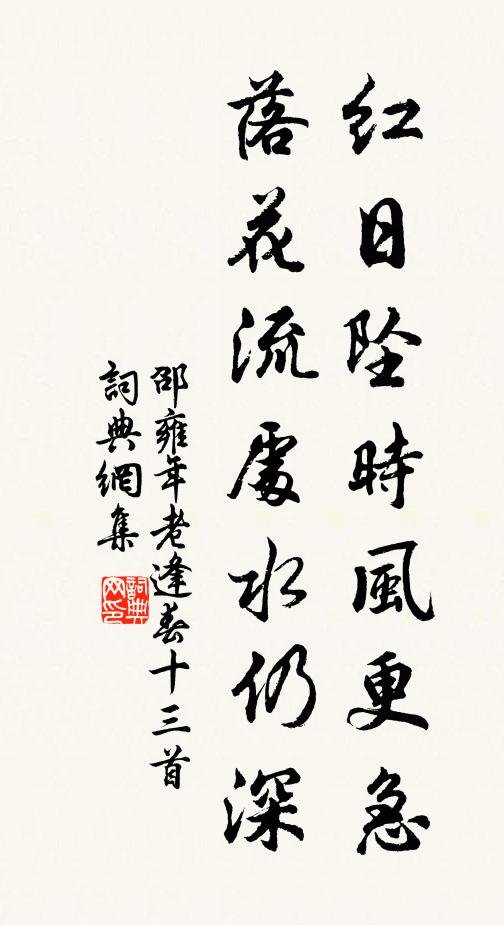 紅日墜時風更急
落花流處水仍深
邵雍年老逢春十三首
詞典網集
詞典網印